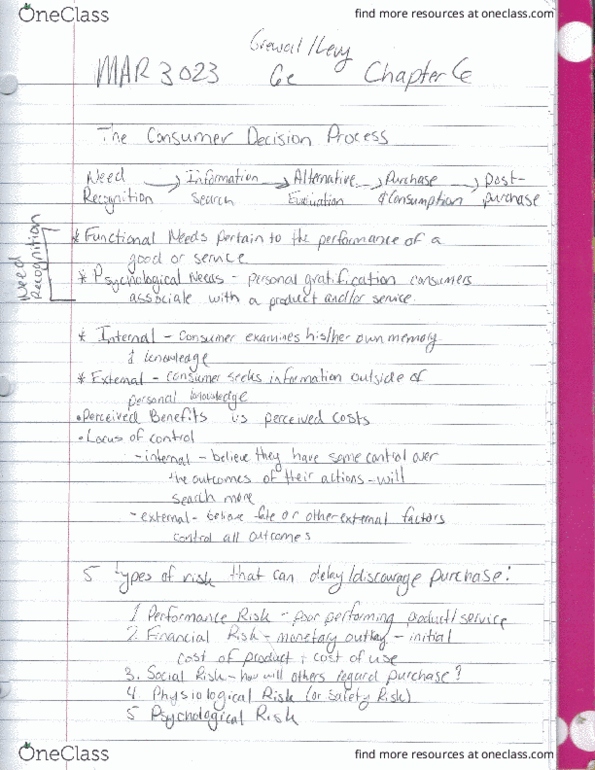 OneClass find more resources at oneclass.com
Grewal/Levy
MAR 3023 6e Chapter 6
The Consumer Decision Process
Need → Information → Alternative → Purchase → Post-
Recognition Search Evaluation & Consumption purchase
Need Recognition
* Functional Needs pertain to the performance of a
good or service
* Psychological Needs - personal gratification consumers
associate with a product and/or service
* Internal - Consumer examines his/her own memory
& knowledge
* External - consumer seeks information outside of
personal knowledge
• Perceived Benefits vs perceived costs
• Locus of control
- internal - believe they have some control over
the outcomes of their actions - will
search more
- external - believe fate or other external factors
control all outcomes
5 types of risk that can delay/discourage purchase:
1 Performance Risk - poor performing product/service
2. Financial Risk - monetary outlay - initial
cost of product + cost of use
3. Social Risk - how will others regard purchase?
4. Physiological Risk (or Safety Risk)
5 Psychological Risk
OneClass find more resources at oneclass.com